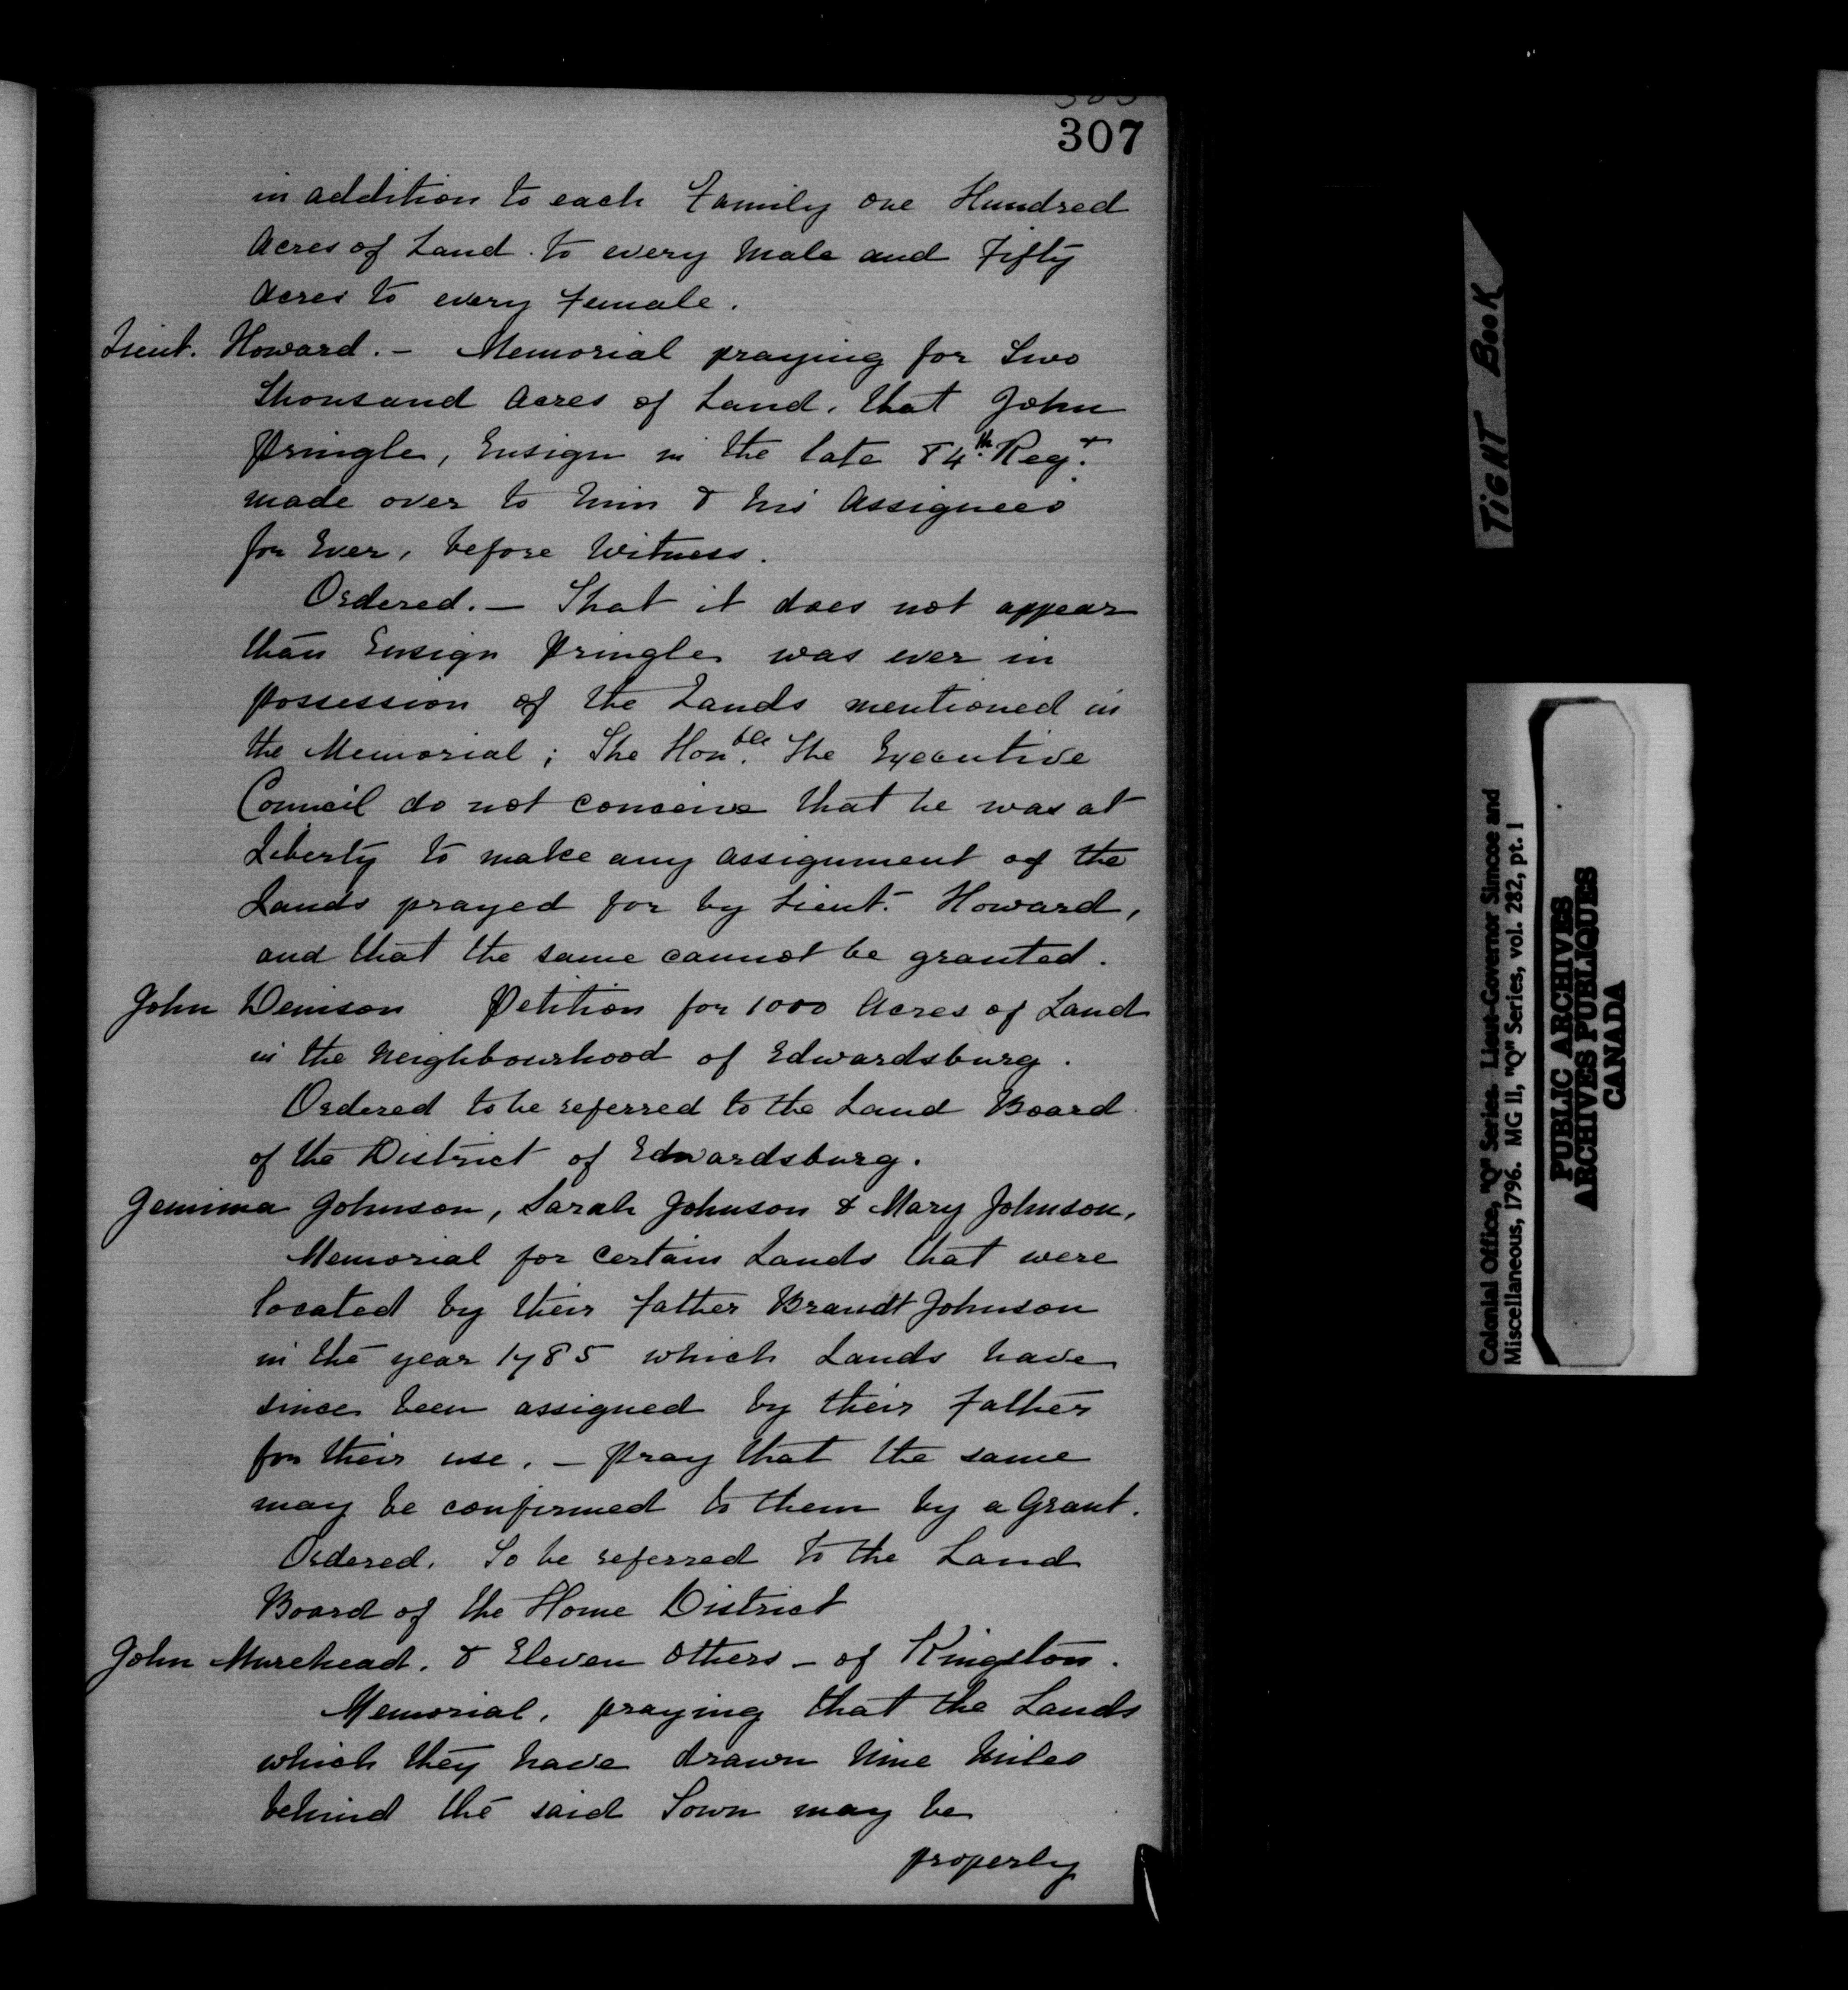 307
in addition to each Family one Hundred
Acres of Land. to every Male and Fifty
Acres to every female.
Lieut. Howard. - Memorial praying for Two
Thousand Acres of Land, that John
Pringle, Ensign in the late 84th. Regt.
made over to him & his Assignees
for Ever, before Witness.
Ordered. - That it does not appear
than Ensign Pringle was ever in
possession of the Lands mentioned in
the Memorial; The Honble. The Executive
Council do not conceive that he was at
Liberty to make any assignment of the
Lands prayed for by Lieut. Howard,
and that the same cannot be granted.
John Denison Petition for 1000 Acres of Land
in the Neighbourhood of Edwardsburg.
Ordered to be referred to the Land Board
of the District of Edwardsburg.
Jemima Johnson, Sarah Johnson & Mary Johnson,
Memorial for certain Lands that were
located by their father Brandt Johnson
in the year 1785 which Lands have
since been assigned by their father
for their use. - Pray that the same
may be confirmed to them by a Grant.
Ordered. To be referred to the Land
Board of the Home District
John Murehead. & Eleven Others - of Kingston.
Memorial, praying that the Lands
which they have drawn Nine Miles
behind the said Town may be
properly
TIGHT BOOK
Colonial Office, "Q" Series. Lieut-Governor Simcoe and
Miscellaneous, 1796. MG 11, "Q" Series, vol. 282, pt. 1
PUBLIC ARCHIVES
ARCHIVES PUBLIQUES
CANADA